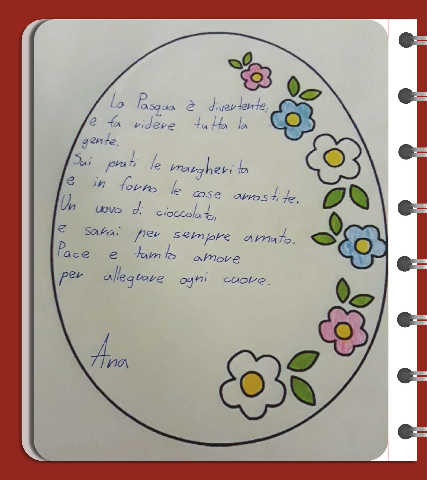 La Pasqua è divertente,
e fa ridere tutta la
gente.
Sui prati le margherita
e in forno le cose arrostite.
Un uovo di cioccolato,
e sarai per sempre amato.
Pace e tanto amore
per allegrare ogni cuore.
Ana